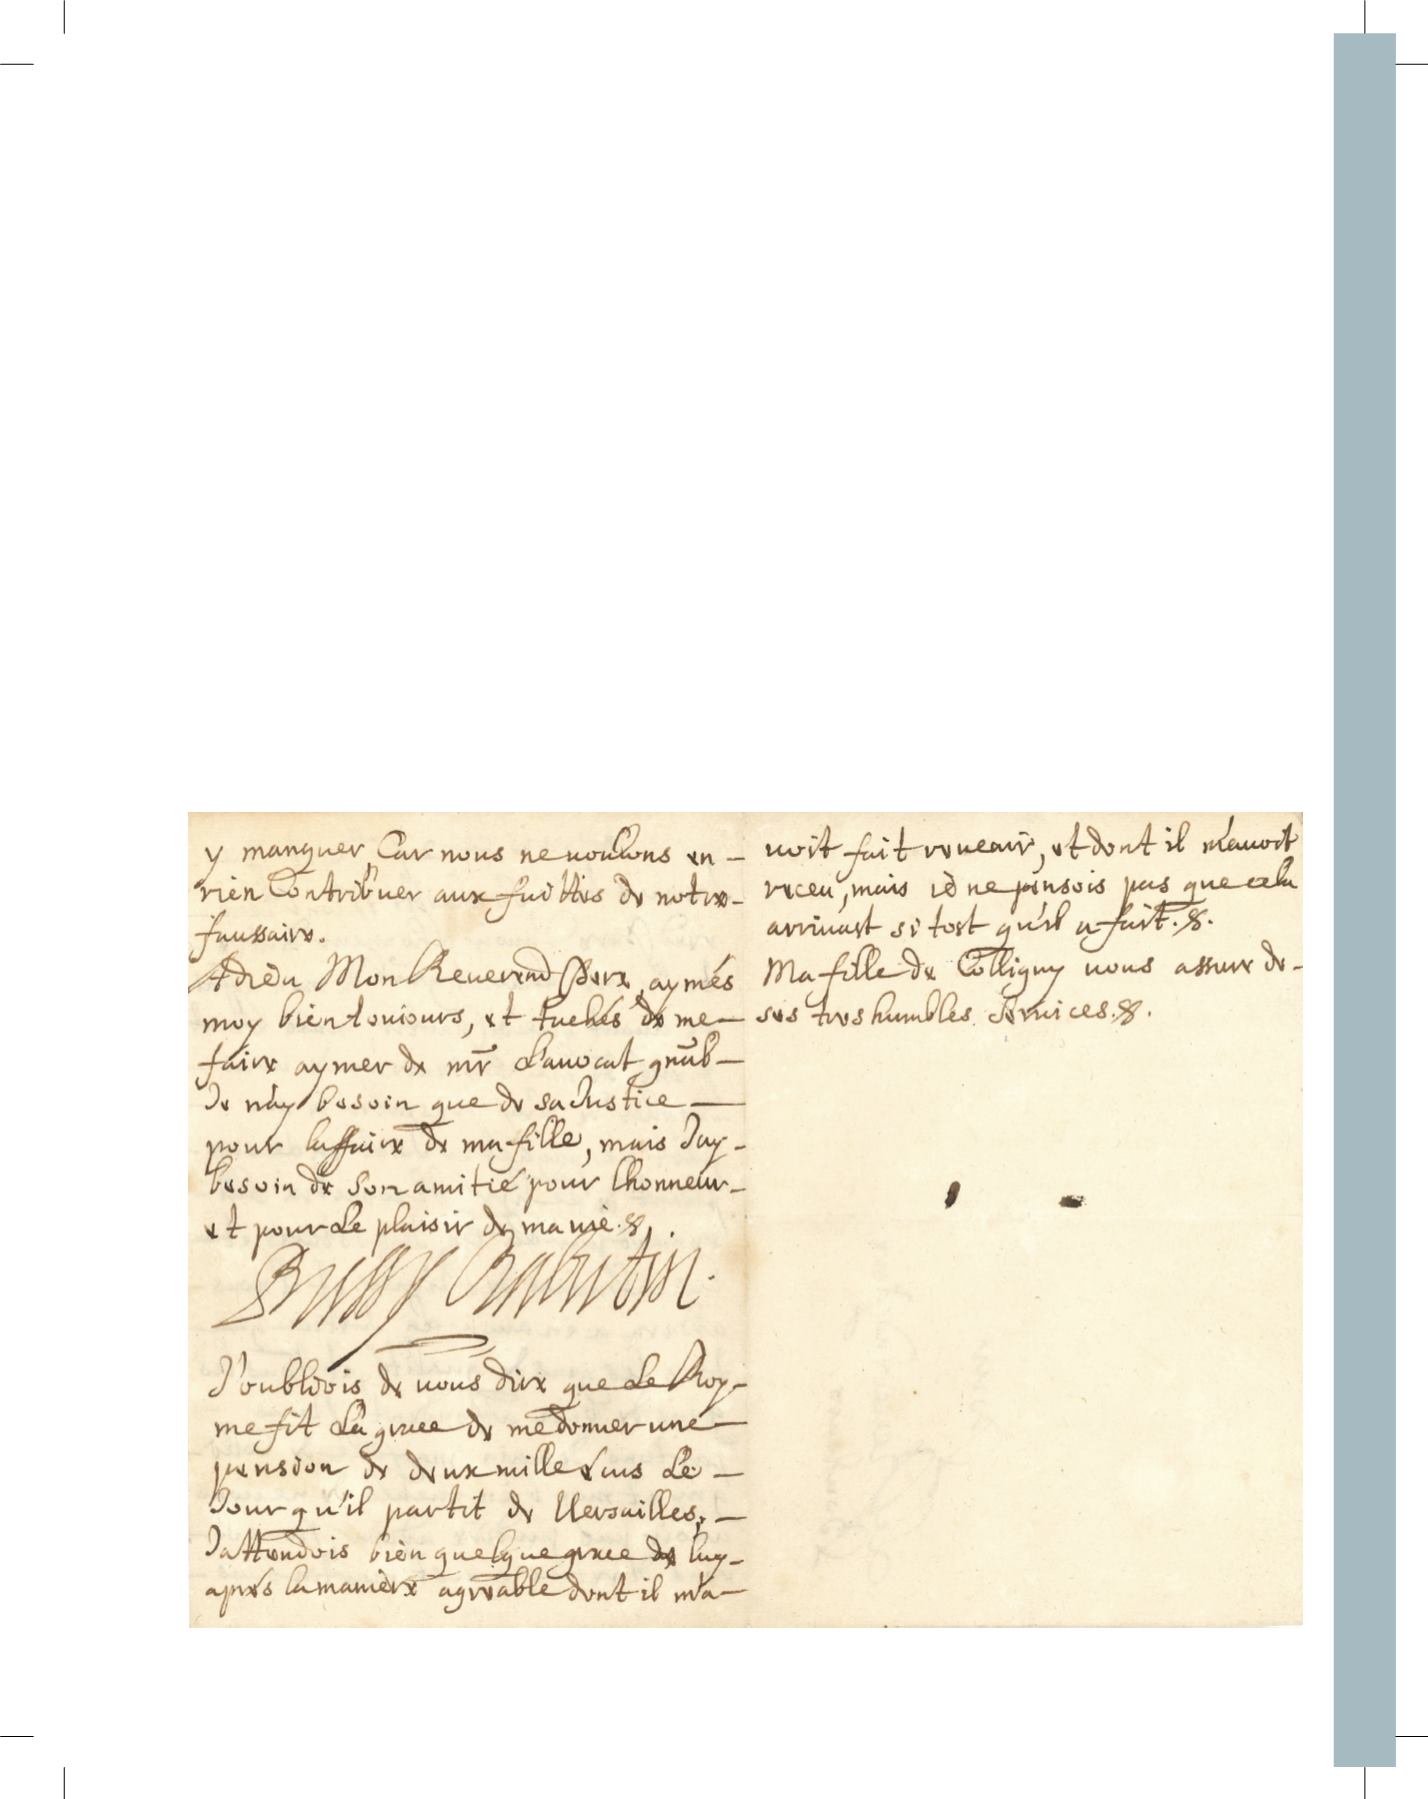 y manquer, Car nous ne voulons en –
rien Contribuer aux fuittes de notre –
faussaire.
Adieu Mon Reverend Pere, aymés
moy bien touiours, et tachés de me –
faire aymer de mr L'avocat gnâl –
Je n'ay besoin que de sa Justice –
pour laffaire de ma fille, mais Jay –
besoin de Son amitié pour lhonneur –
et pour Le plaisir de ma vie. &.
Bussy Rabutin.
J'oubliois de vous dire que Le Roy –
me fit La grace de me donner une –
pension de deux mille Escus Le –
Jour qu'il partit de Versailles, –
Jattendois bien quelque grace de luy –
aprés la maniere agreable dont il m'a –
voit fait revenir, et dont il m'avoit
receu, mais ie ne pensois pas que cela
arrivast si tost qu'il a fait. &.
Ma fille de Colligny vous assure de –
ses tres humbles Services. &.